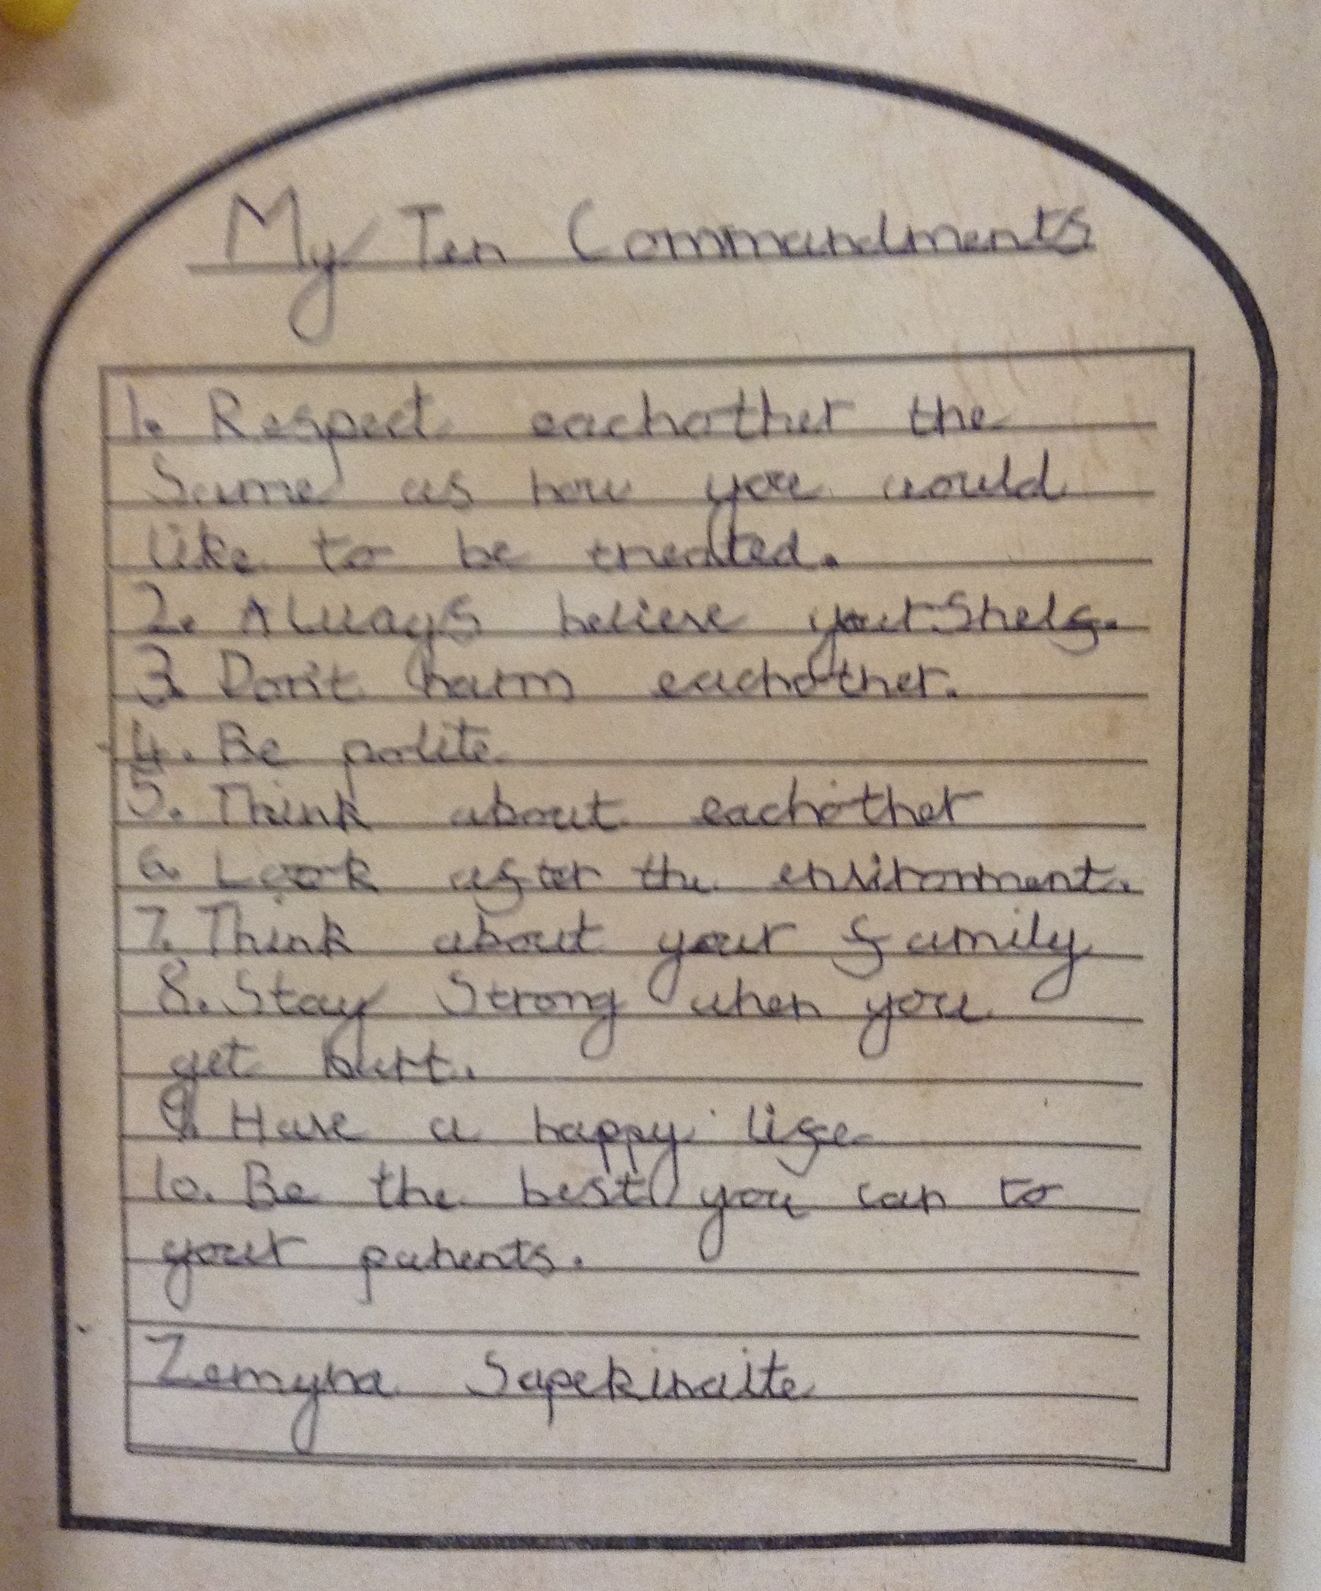 My Ten Commandments
1. Respect eachother the
Same as how you would
like to be treated.
2. Always believe yourShelf.
3. Don't harm eachother.
4. Be polite
5. Think about eachother
6. Look after the environment.
7. Think about your family
8. Stay Strong when you
get hurt.
9. Have a happy life
10. Be the best you can to
your parents.
Zemyna Sapekinaite